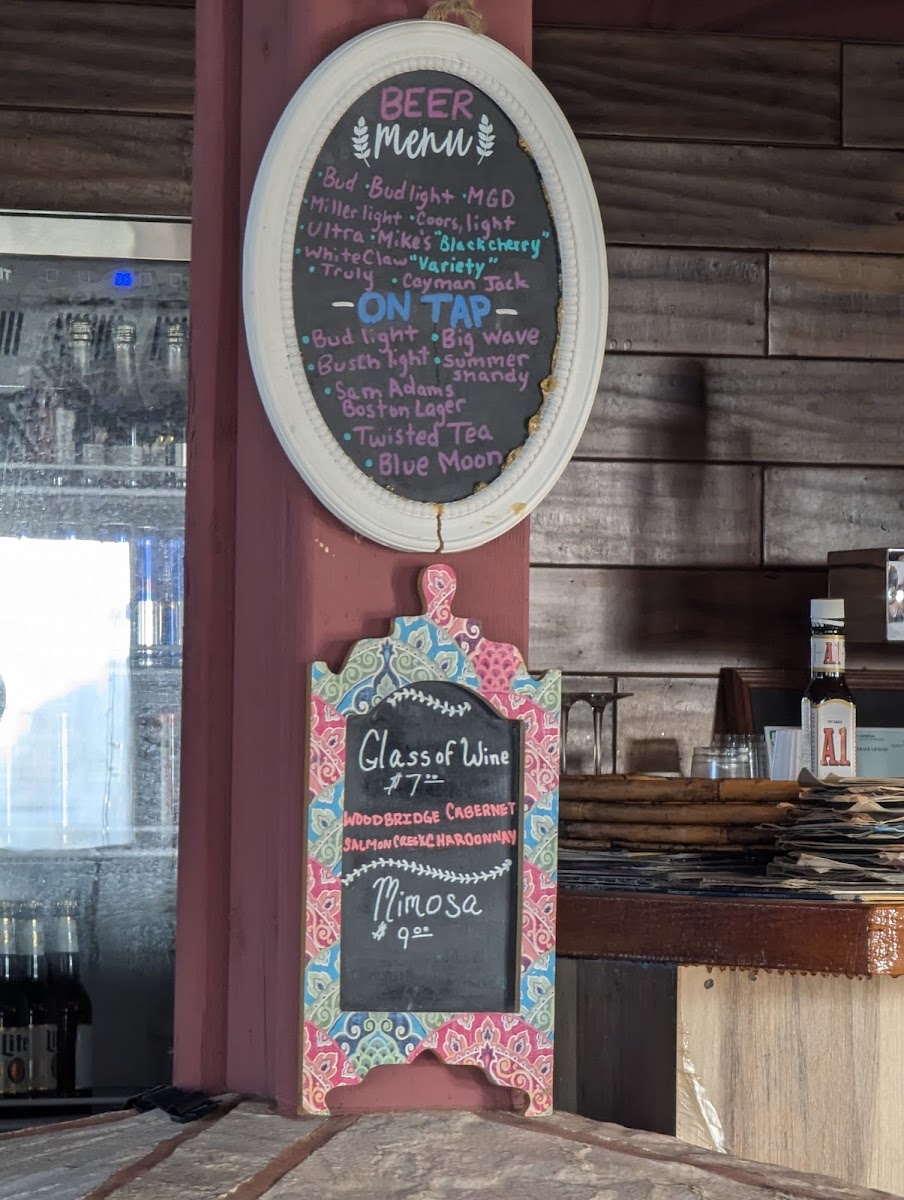 BEER
Menu
•Bud •Bud light •MGD
•Miller light •Coors light
•Ultra •Mike's "Black cherry"
•White Claw "Variety"
•Truly •Cayman Jack
-ON TAP-
•Bud light •Big wave
•Busch light •summer
shandy
•Sam Adams
Boston Lager
•Twisted Tea
•Blue Moon
Glass of Wine
$7.00
WOODBRIDGE CABERNET
SALMON CREEK CHARDONNAY
Mimosa
$9.00
A.1
A.1
Lite